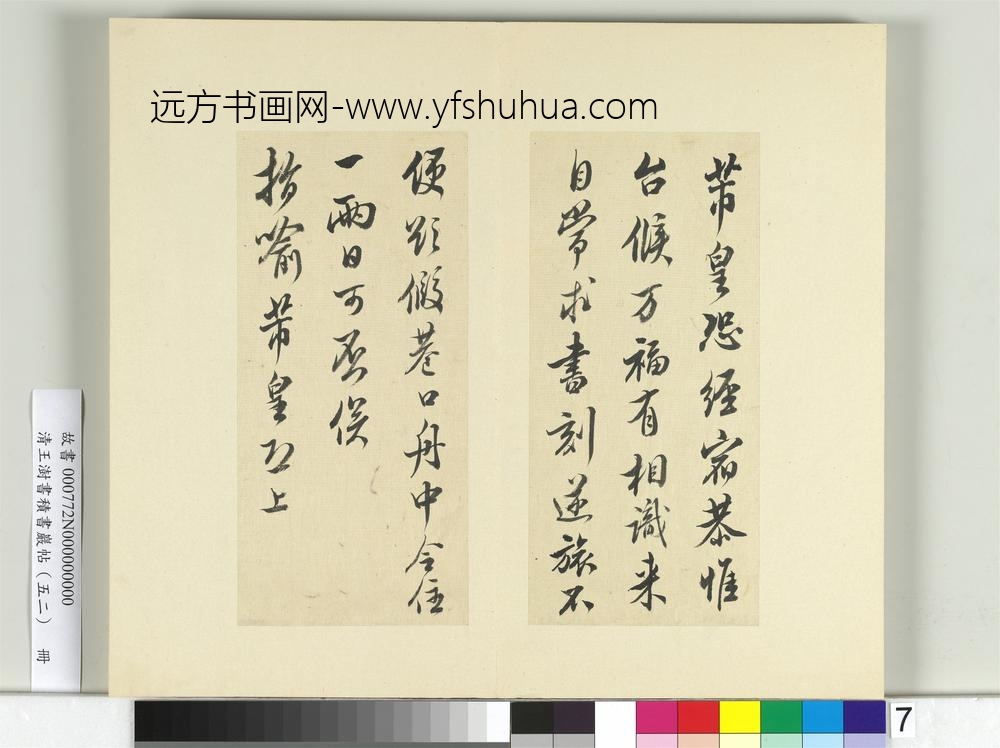 远方书画网-www.yfshuhua.com
芾皇恐經宿恭惟
台候万福有相識来
自常求書刻逆旅不
便欲假巷口舟中令住
一兩日可否俟
指喻芾皇恐上
故書 000772N000000000
清王澍書積書巖帖（五二） 冊
7